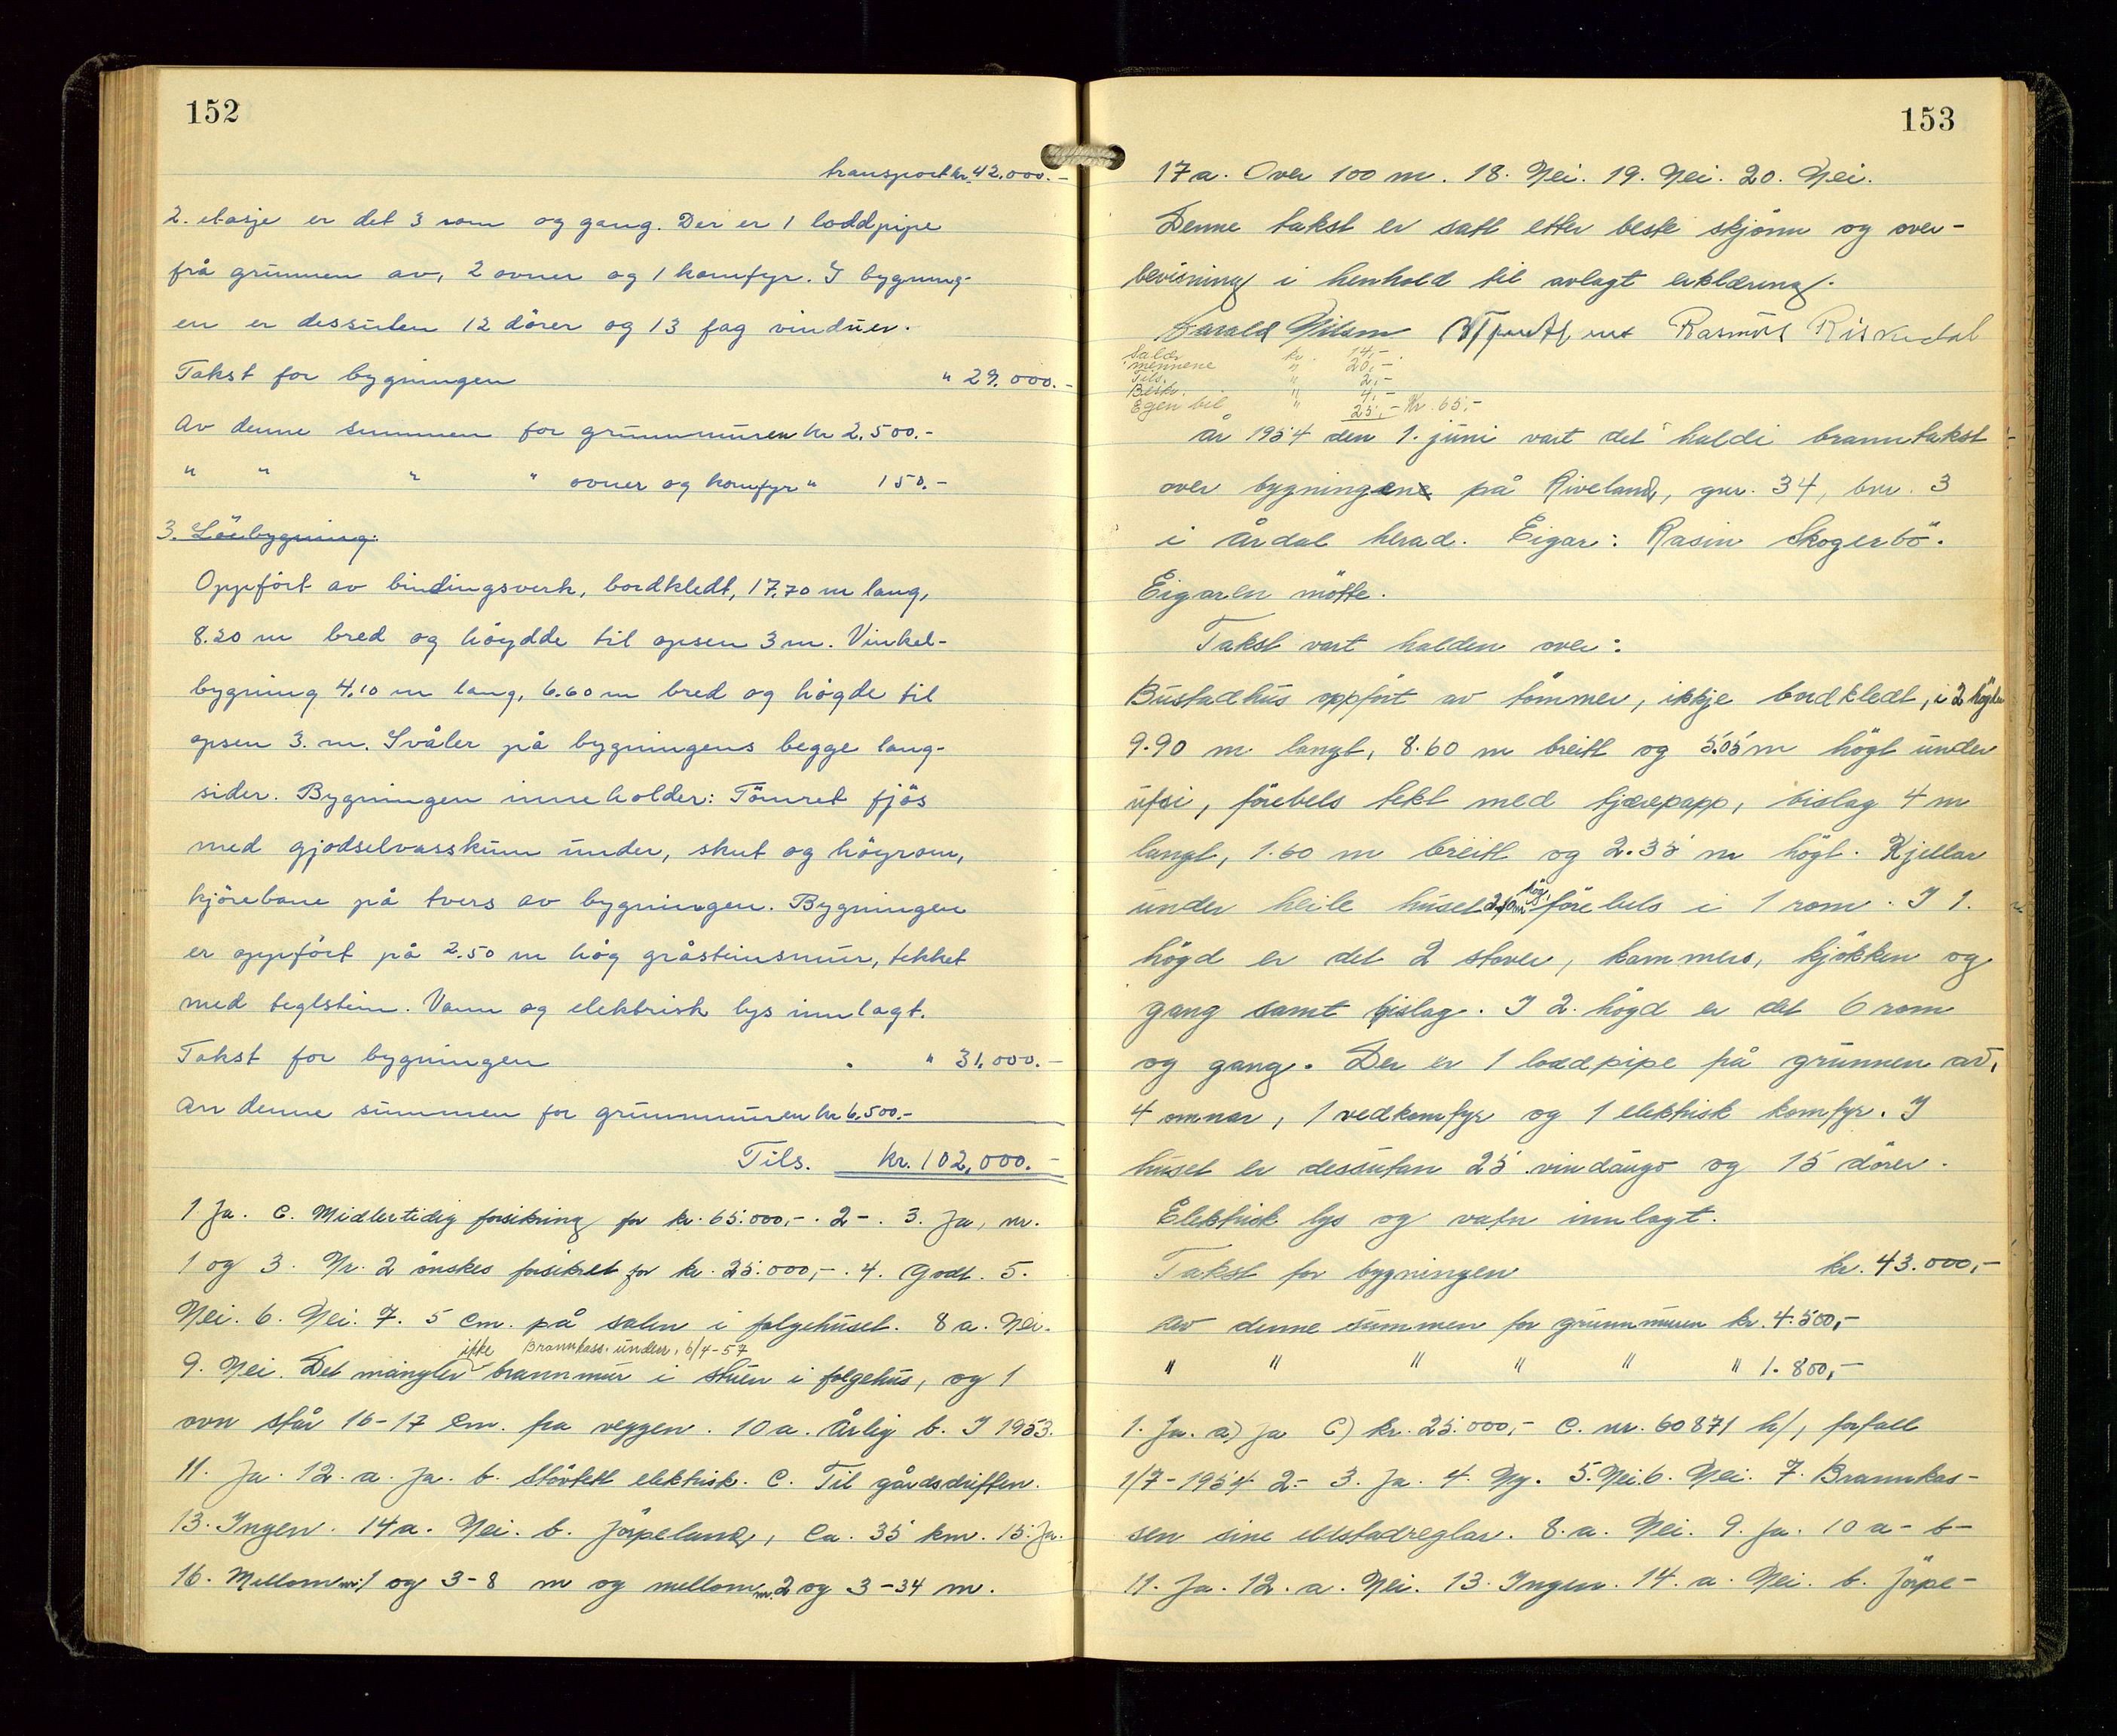 152
transport kr. 42.000.-
2. etasje er det 3 rom og gang. Der er 1 loddpipe
frå grunnen av, 2 ovner og 1 komfyr. I bygning-
en er dessuten 12 dörer og 13 fag vinduer.
Takst for bygningen " 29.000.-
Av denne summen for grunnmuren kr 2.500.-
" " " " ovner og komfyr " 150.-
3. Löebygning:
Oppfört av bindingsverk, bordkledt, 17.70 m lang,
8.20 m bred og höydde til opsen 3 m. Vinkel-
bygning 4.10 m lang, 6.60 m bred og högde til
opsen 3. m. Svåler på bygningens begge lang-
sider. Bygningen inneholder: Tömret fjös
med gjödselvasskum under, skut og höyrom,
kjörebane på tvers av bygningen. Bygningen
er oppfört på 2.50 m hög gråsteinsmur, tekket
med teglstein. Vann og elektrisk lys innlagt.
Takst for bygningen " 31.000.-
Av denne summen for grunnmuren kr 6.500.-
Tils. kr. 102.000.-
1. Ja. C. Midlertidig forsikring for kr. 65.000,-. 2-. 3. Ja, nr.
1 og 3. Nr. 2 önskes forsikret for kr. 25.000,-. 4. Godt. 5.
Nei. 6. Nei. 7. 5 cm. på salen i folgehuset. 8 a. Nei.
ikke Brannkass. under. 6/4-57
9. Nei. Det mangler brannmur i stuen i folgehus, og 1
ovn står 16-17 cm. fra veggen. 10 a. Årlig b. I 1953.
11. Ja. 12. a. Ja. b. Stövtett elektrisk. C. Til gårdsdriften.
13. Ingen. 14 a. Nei. b. Jörpeland, ca. 35 km. 15. Ja.
16. Mellom nr. 1 og 3-8 m og mellom nr. 2 og 3-34 m.
153
17 a. Over 100 m. 18. Nei. 19. Nei. 20. Nei.
Denne takst er satt etter beste skjönn og over-
bevisning i henhold til avlagt erklæring.
Harald Nilsen Rasmus Riskedal
Salær kr. 14,-
mennene " 20,-
Tils. " 2,-
Beskr. " 4,-
Egen bil " 25,- Kr. 65,-
År 1954 den 1. juni vart det haldi branntakst
over bygningene på Riveland, gnr. 34, bnr. 3
i Årdal herad. Eigar: Rasin Skogerbö.
Eigaren mötte.
Takst vart halden over:
Bustadhus oppfört av tömmer, ikkje bordkledt, i 2 högder
9.90 m langt, 8.60 m breitt og 5.05 m högt under
ufsi, förebels tekt med tjærepapp, bislag 4 m
langt, 1.60 m breitt og 2.35 m högt. Kjellar
under heile huset 2,10 m hög, förebels i 1 rom. I 1.
högd er det 2 stover, kammers, kjökken og
gang samt bislag. I 2. högd er det 6 rom
og gang. Der er 1 loddpipe på grunnen av,
4 omnar, 1 vedkomfyr og 1 elektrisk komfyr. I
huset er dessutan 25 vindaugo og 15 dörer.
Elektrisk lys og vatn innlagt.
Takst for bygningen kr. 43.000,-
Av denne summen for grunnmuren kr. 4.500,-
" " " " " " 1.800,-
1. Ja. a) Ja C) kr. 25.000,- C. nr. 60871 h/, forfall
1/7-1954 2.- 3. Ja. 4. Ny. 5. Nei. 6. Nei. 7. Brannkas-
sen sine eldstadreglar. 8. a. Nei. 9. Ja. 10 a- b-
11. Ja. 12. a. Nei. 13. Ingen. 14. a. Nei. b. Jörpe-